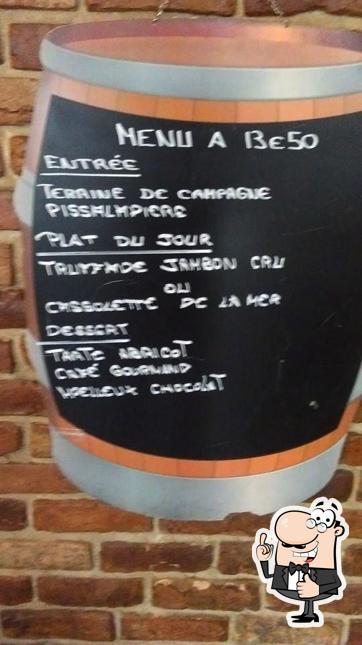 MENU A 13€50
ENTRÉE
TERRINE DE CAMPAGNE
PLAT DU JOUR
JAMBON CRU
OU
CASSOLETTE DE LA MER
DESSERT
TARTE ABRICOT
CAFÉ GOURMAND
MOELLEUX CHOCOLAT